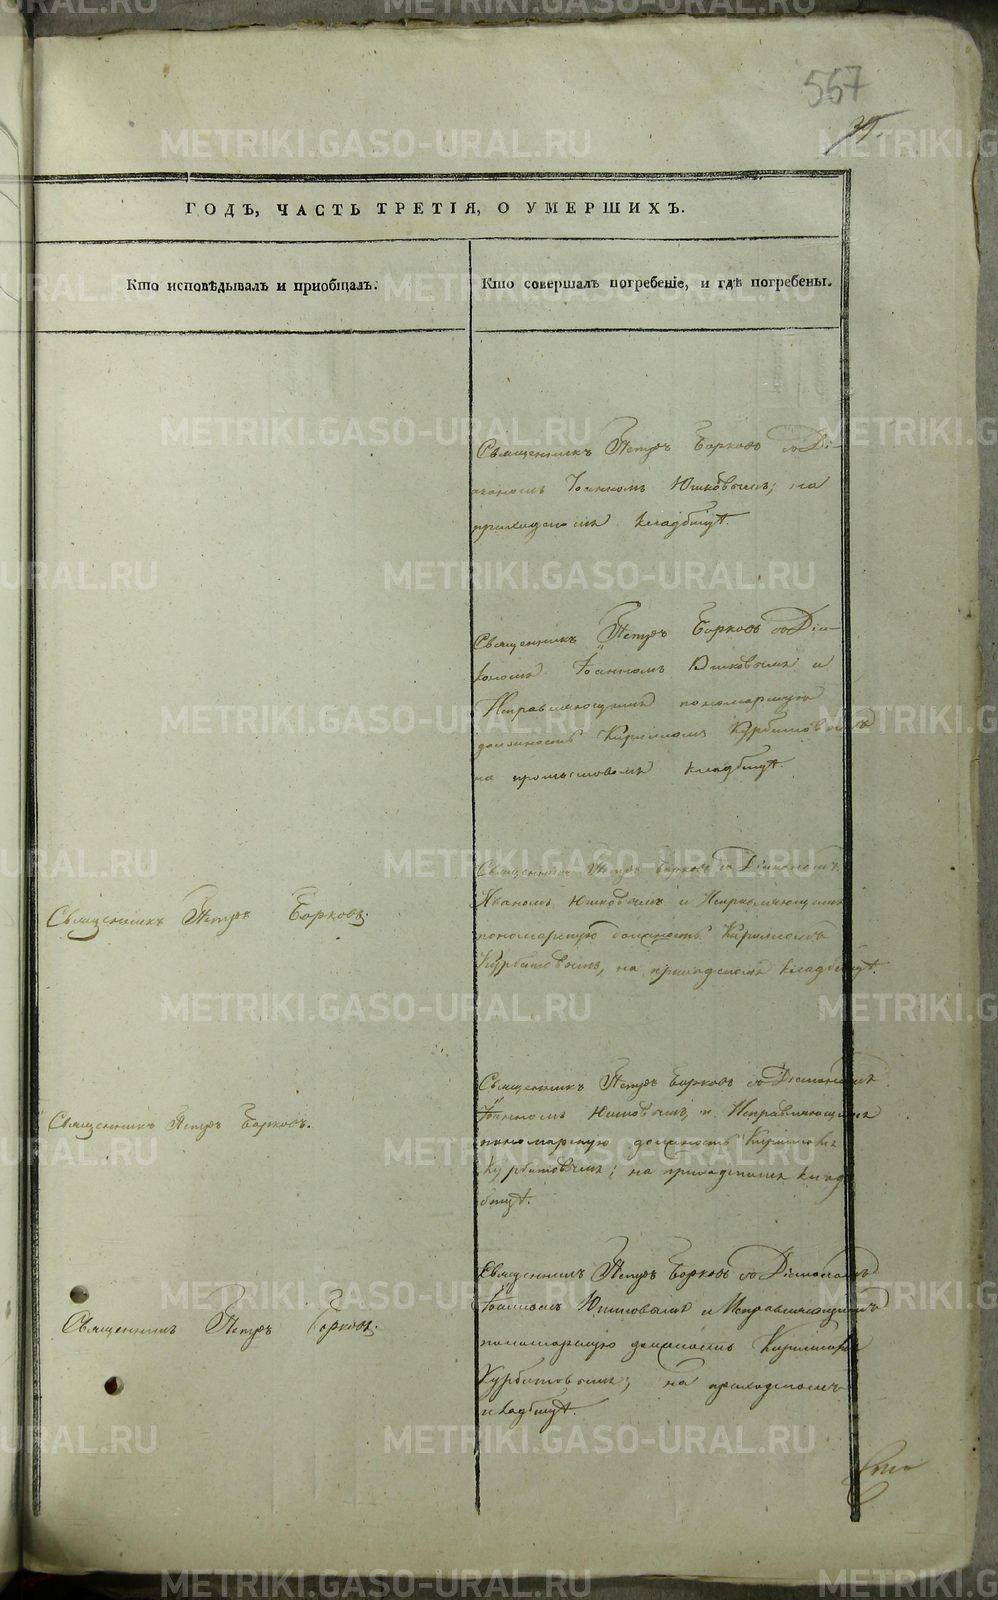 567
ГОДЪ, ЧАСТЬ ТРЕТІЯ, О УМЕРШИХЪ.
Кто исповѣдывалъ и приобщалъ.
Кто совершалъ погребеніе, и гдѣ погребены.
Священникъ Петръ Борковъ съ Ді-
акономъ Іоанномъ Юшковымъ; на
приходскомъ кладбищѣ.
Священникъ Петръ Борковъ съ Діа-
кономъ Іоанномъ Юшковымъ и
Исправляющимъ пономарскую
должность Кириломъ Курбатовымъ
на кладбищѣ.
Священникъ Петръ Борковъ.
Священникъ Петръ Борковъ съ Діакономъ
Иваномъ Юшковымъ и Исправляющимъ
пономарскую должность Кириломъ
Курбатовымъ, на приходскомъ кладбищѣ.
Священникъ Петръ Борковъ.
Священникъ Петръ Борковъ съ Діакономъ
Іоанномъ Юшковымъ, и Исправляющимъ
пономарскую должность Кириломъ
Курбатовымъ; на приходскомъ клад
бищѣ.
Священникъ Петръ Борковъ.
Священникъ Петръ Борковъ съ Діакономъ
Іоанномъ Юшковымъ и Исправляющимъ
пономарскую должность Кириломъ
Курбатовымъ; на приходскомъ
кладбищѣ.
METRIKI.GASO-URAL.RU